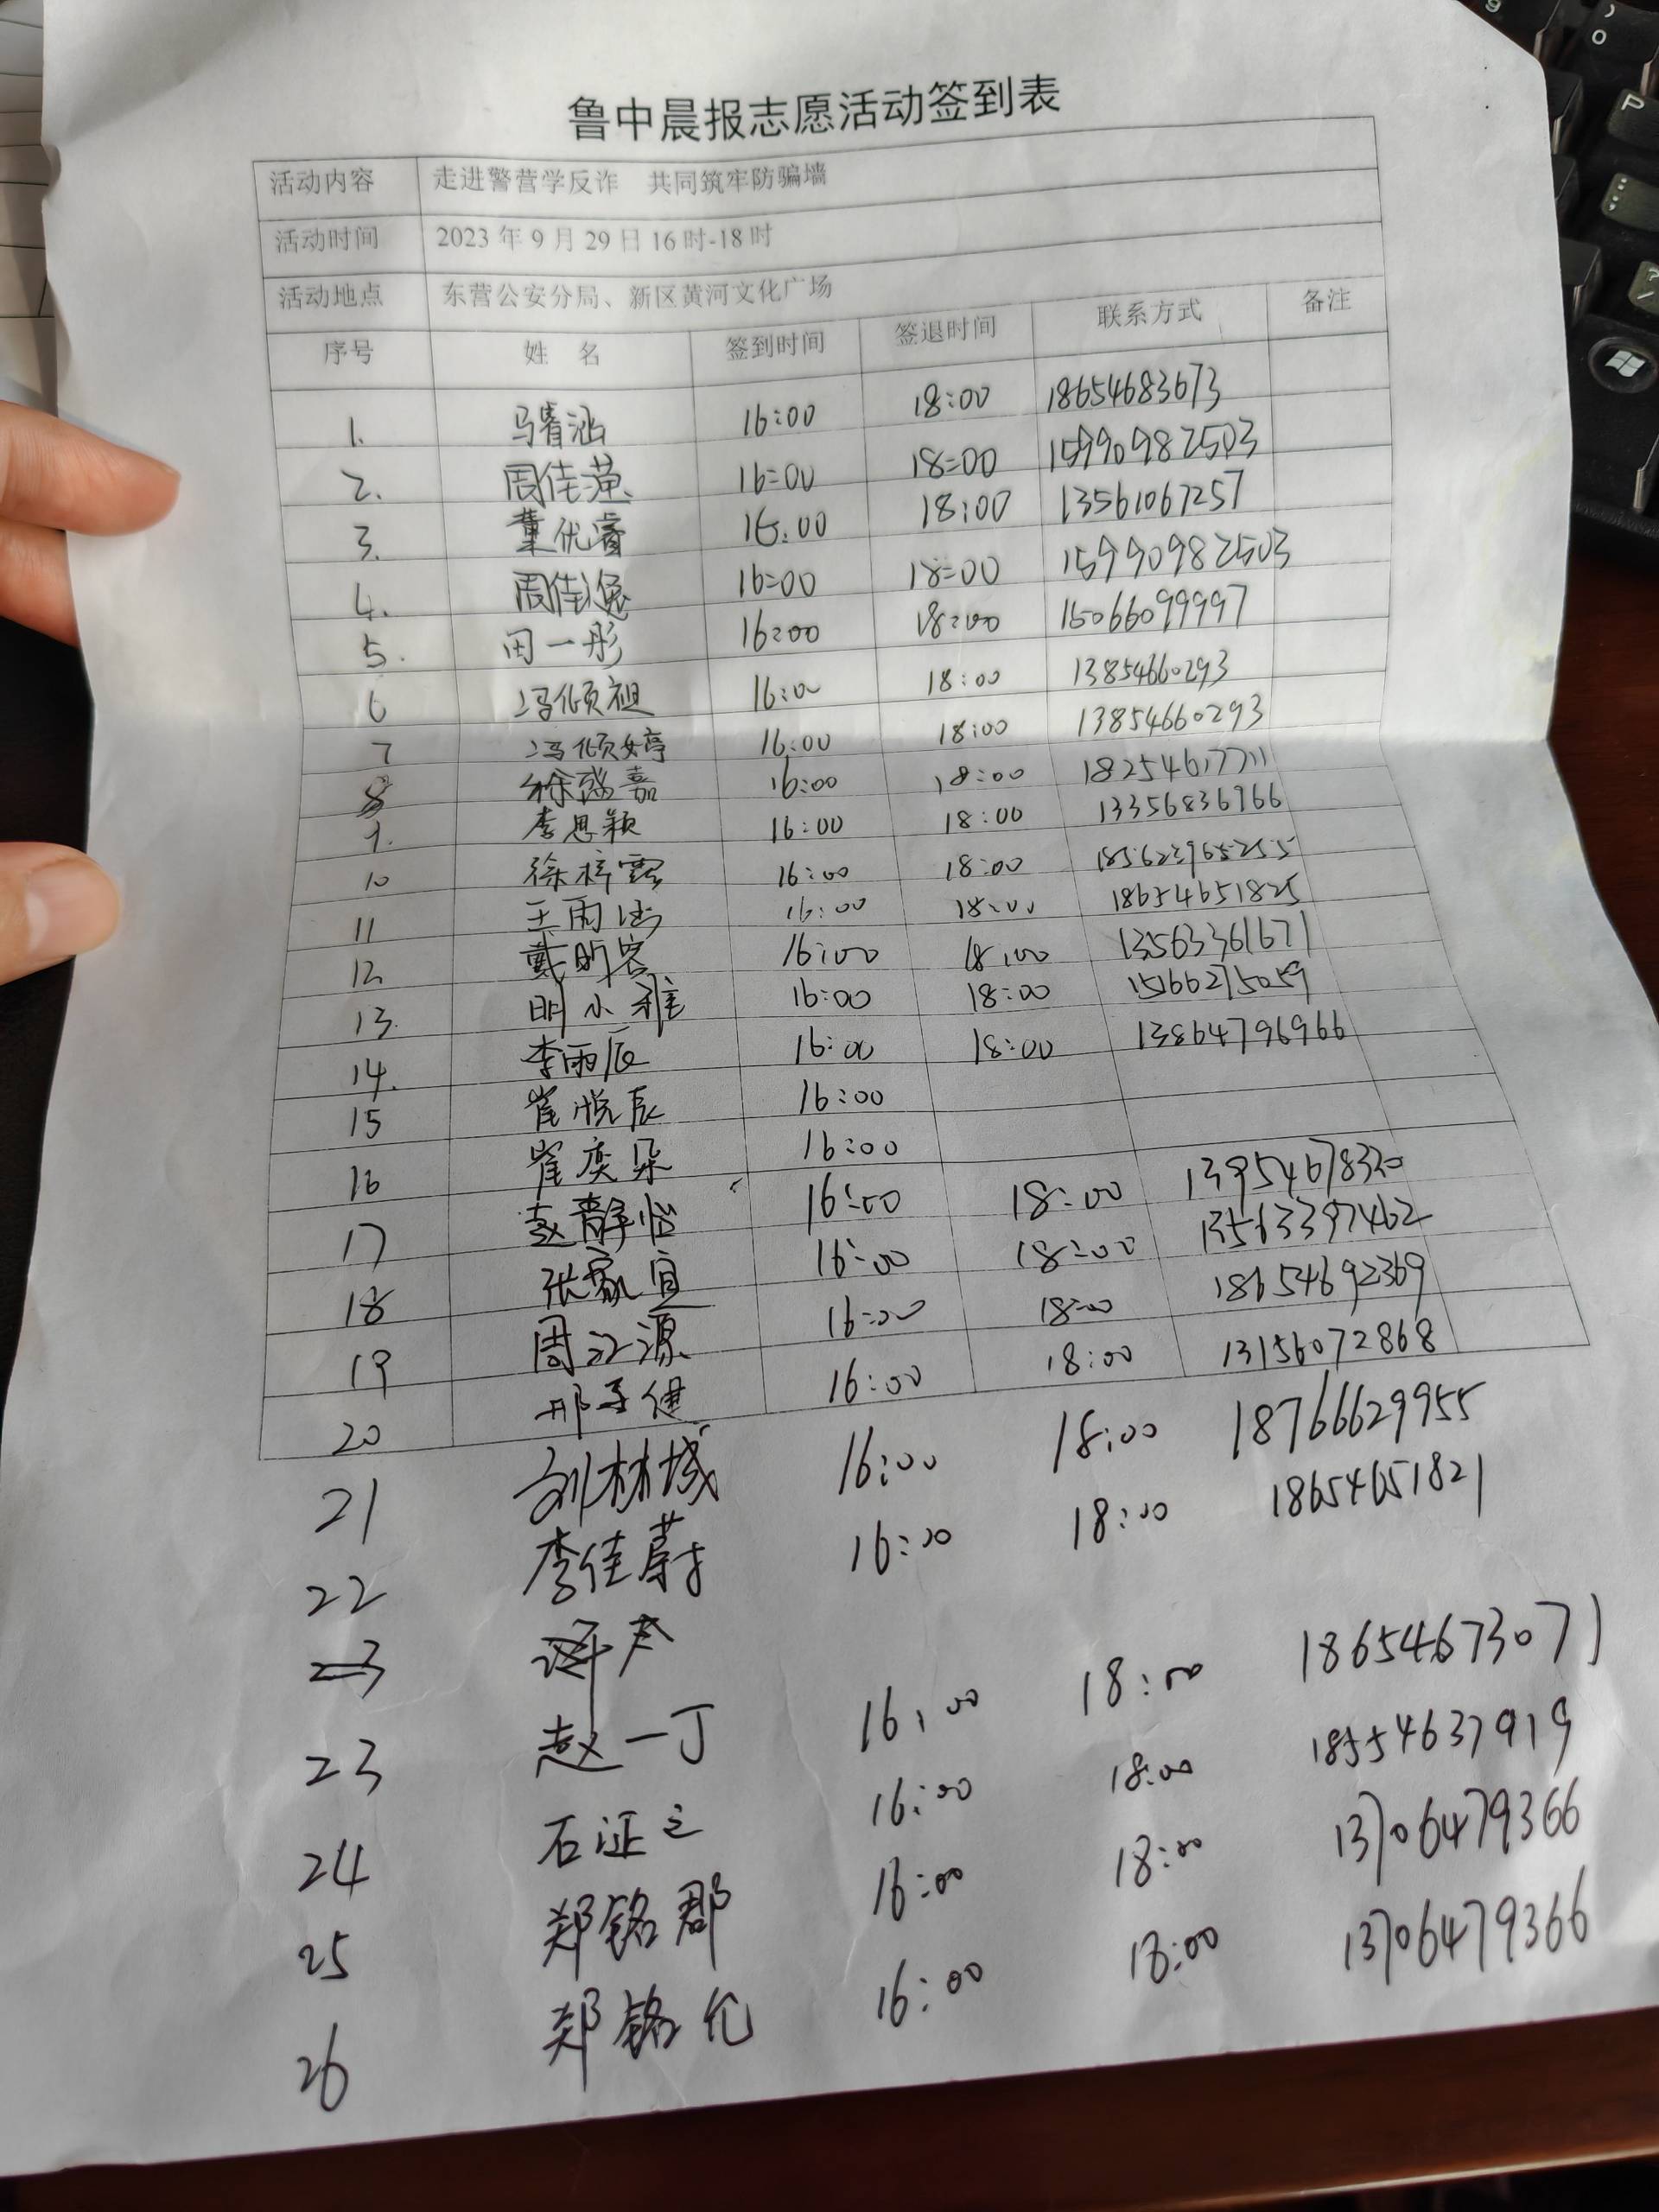 鲁中晨报志愿活动签到表
活动内容 走进警营学反诈 共同筑牢防骗墙
活动时间 2023年9月29日16时-18时
活动地点 东营公安分局、新区黄河文化广场
序号 姓名 签到时间 签退时间 联系方式 备注
1. 马睿涵 16:00 18:00 18654683673
2. 周佳萱 16:00 18:00 15990982503
3. 董优睿 16:00 18:00 13561067257
4. 周佳逸 16:00 18:00 15990982503
5. 田一彤 16:00 18:00 15066099997
6 冯倾祖 16:00 18:00 13854660293
7 冯倾婷 16:00 18:00 13854660293
8 徐瑞嘉 16:00 18:00 18254617711
9. 李思颖 16:00 18:00 13356836966
10 徐梓露 16:00 18:00
11 王雨涵 16:00 18:00 18654651825
12 戴明容 16:00 18:00 13563361671
13. 明小雅 16:00 18:00 15166275059
14. 李雨辰 16:00 18:00 13864796966
15 崔悦辰 16:00
16 崔奕朵 16:00
17 赵静怡 16:00 18:00 13954678330
18 张家宜 16:00 18:00 13563397462
19 周江源 16:00 18:00 18654692369
20 邢子健 16:00 18:00 13156072868
21 刘林城 16:00 18:00 18766629955
22 李佳蔚 16:00 18:00 18654651821
23
23 赵一丁 16:00 18:00 18654673071
24 石证之 16:00 18:00 18554637919
25 郑铭郡 16:00 18:00 13706479366
26 郑铭伦 16:00 18:00 13706479366